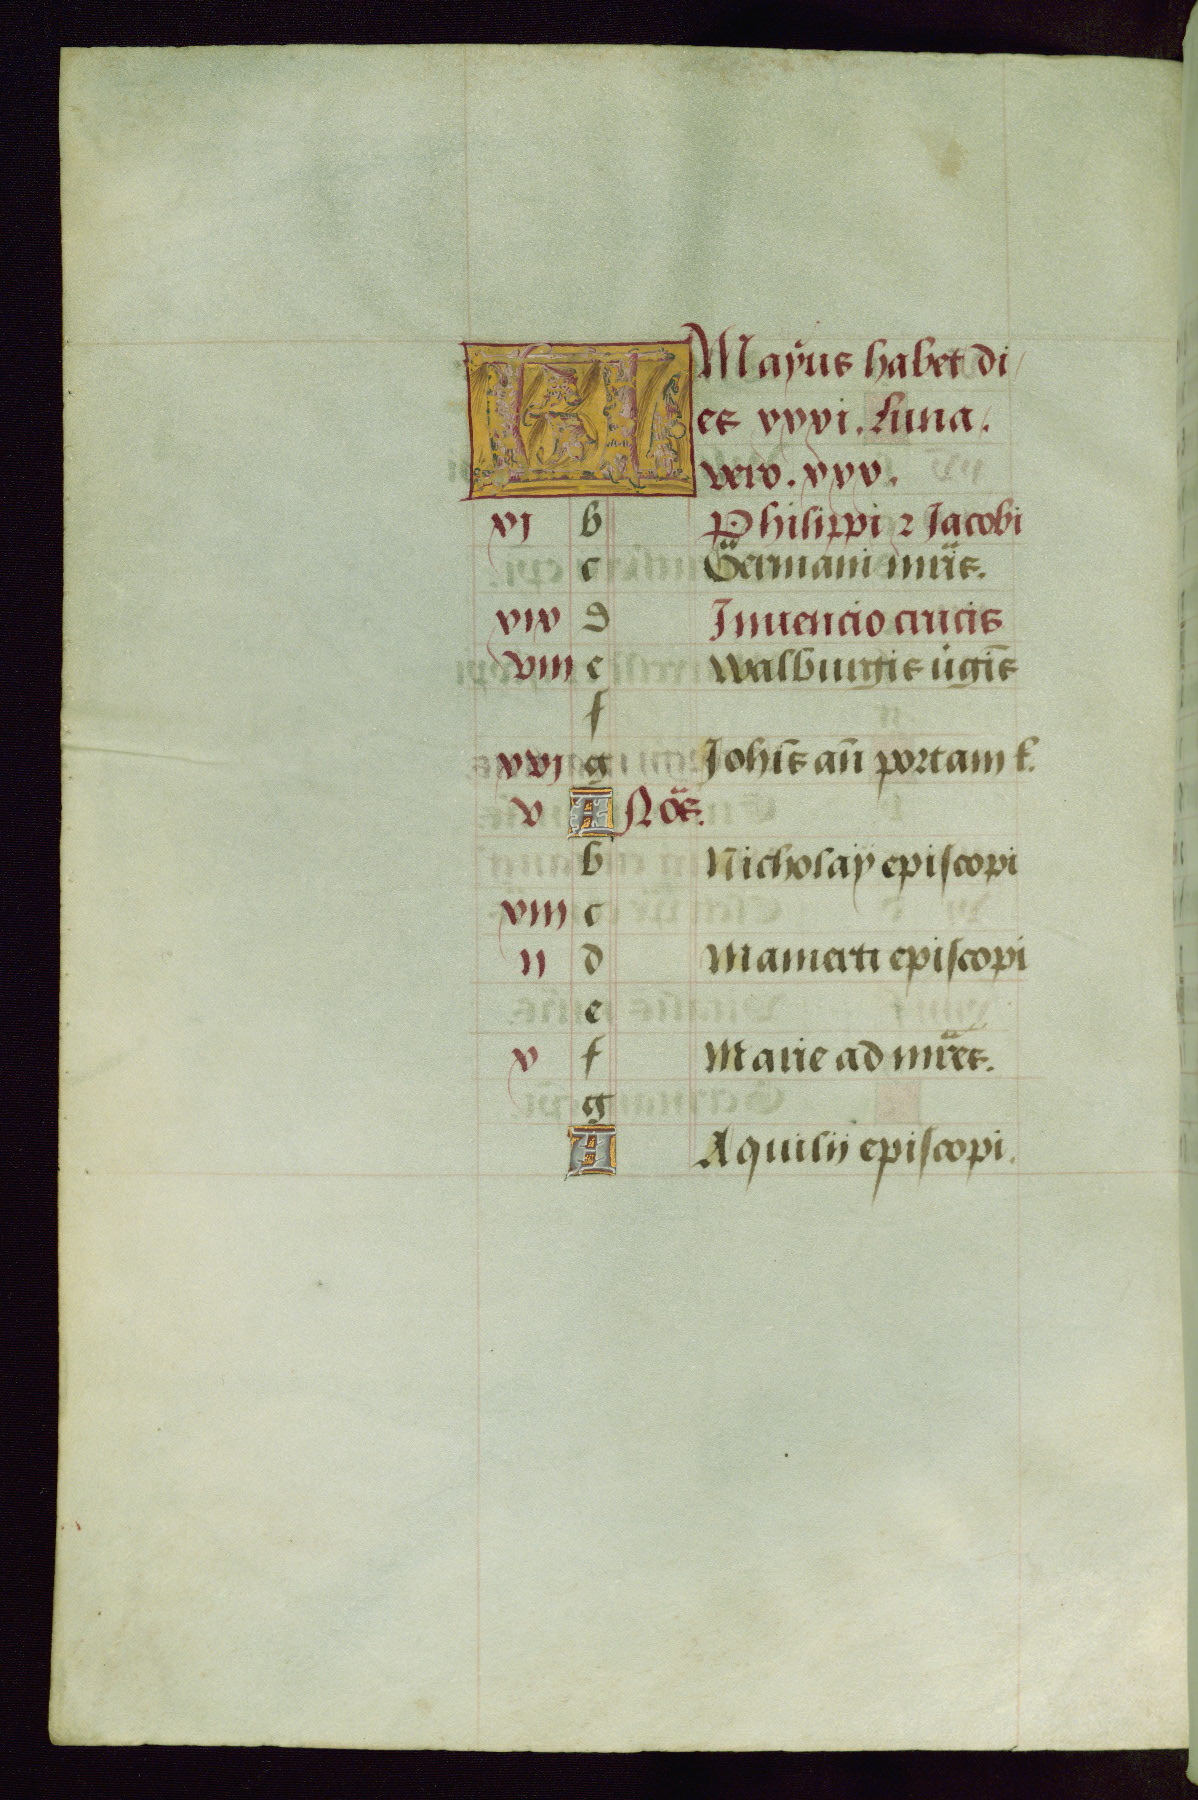 KL Mayus habet di
es xxxi. Luna.
vero. xxx.
xi b Philippi ⁊ Jacobi
c Germani mr̃is.
xix d Inuencio crucis
viii e Walburgis ũgĩs
f
xvi g Johĩs añ portam l.
v A Nõs.
b Nicholaÿ episcopi
xiii c
ii d Mamerti episcopi
e
x f Marie ad mr̃es.
g
A Aquilii episcopi.